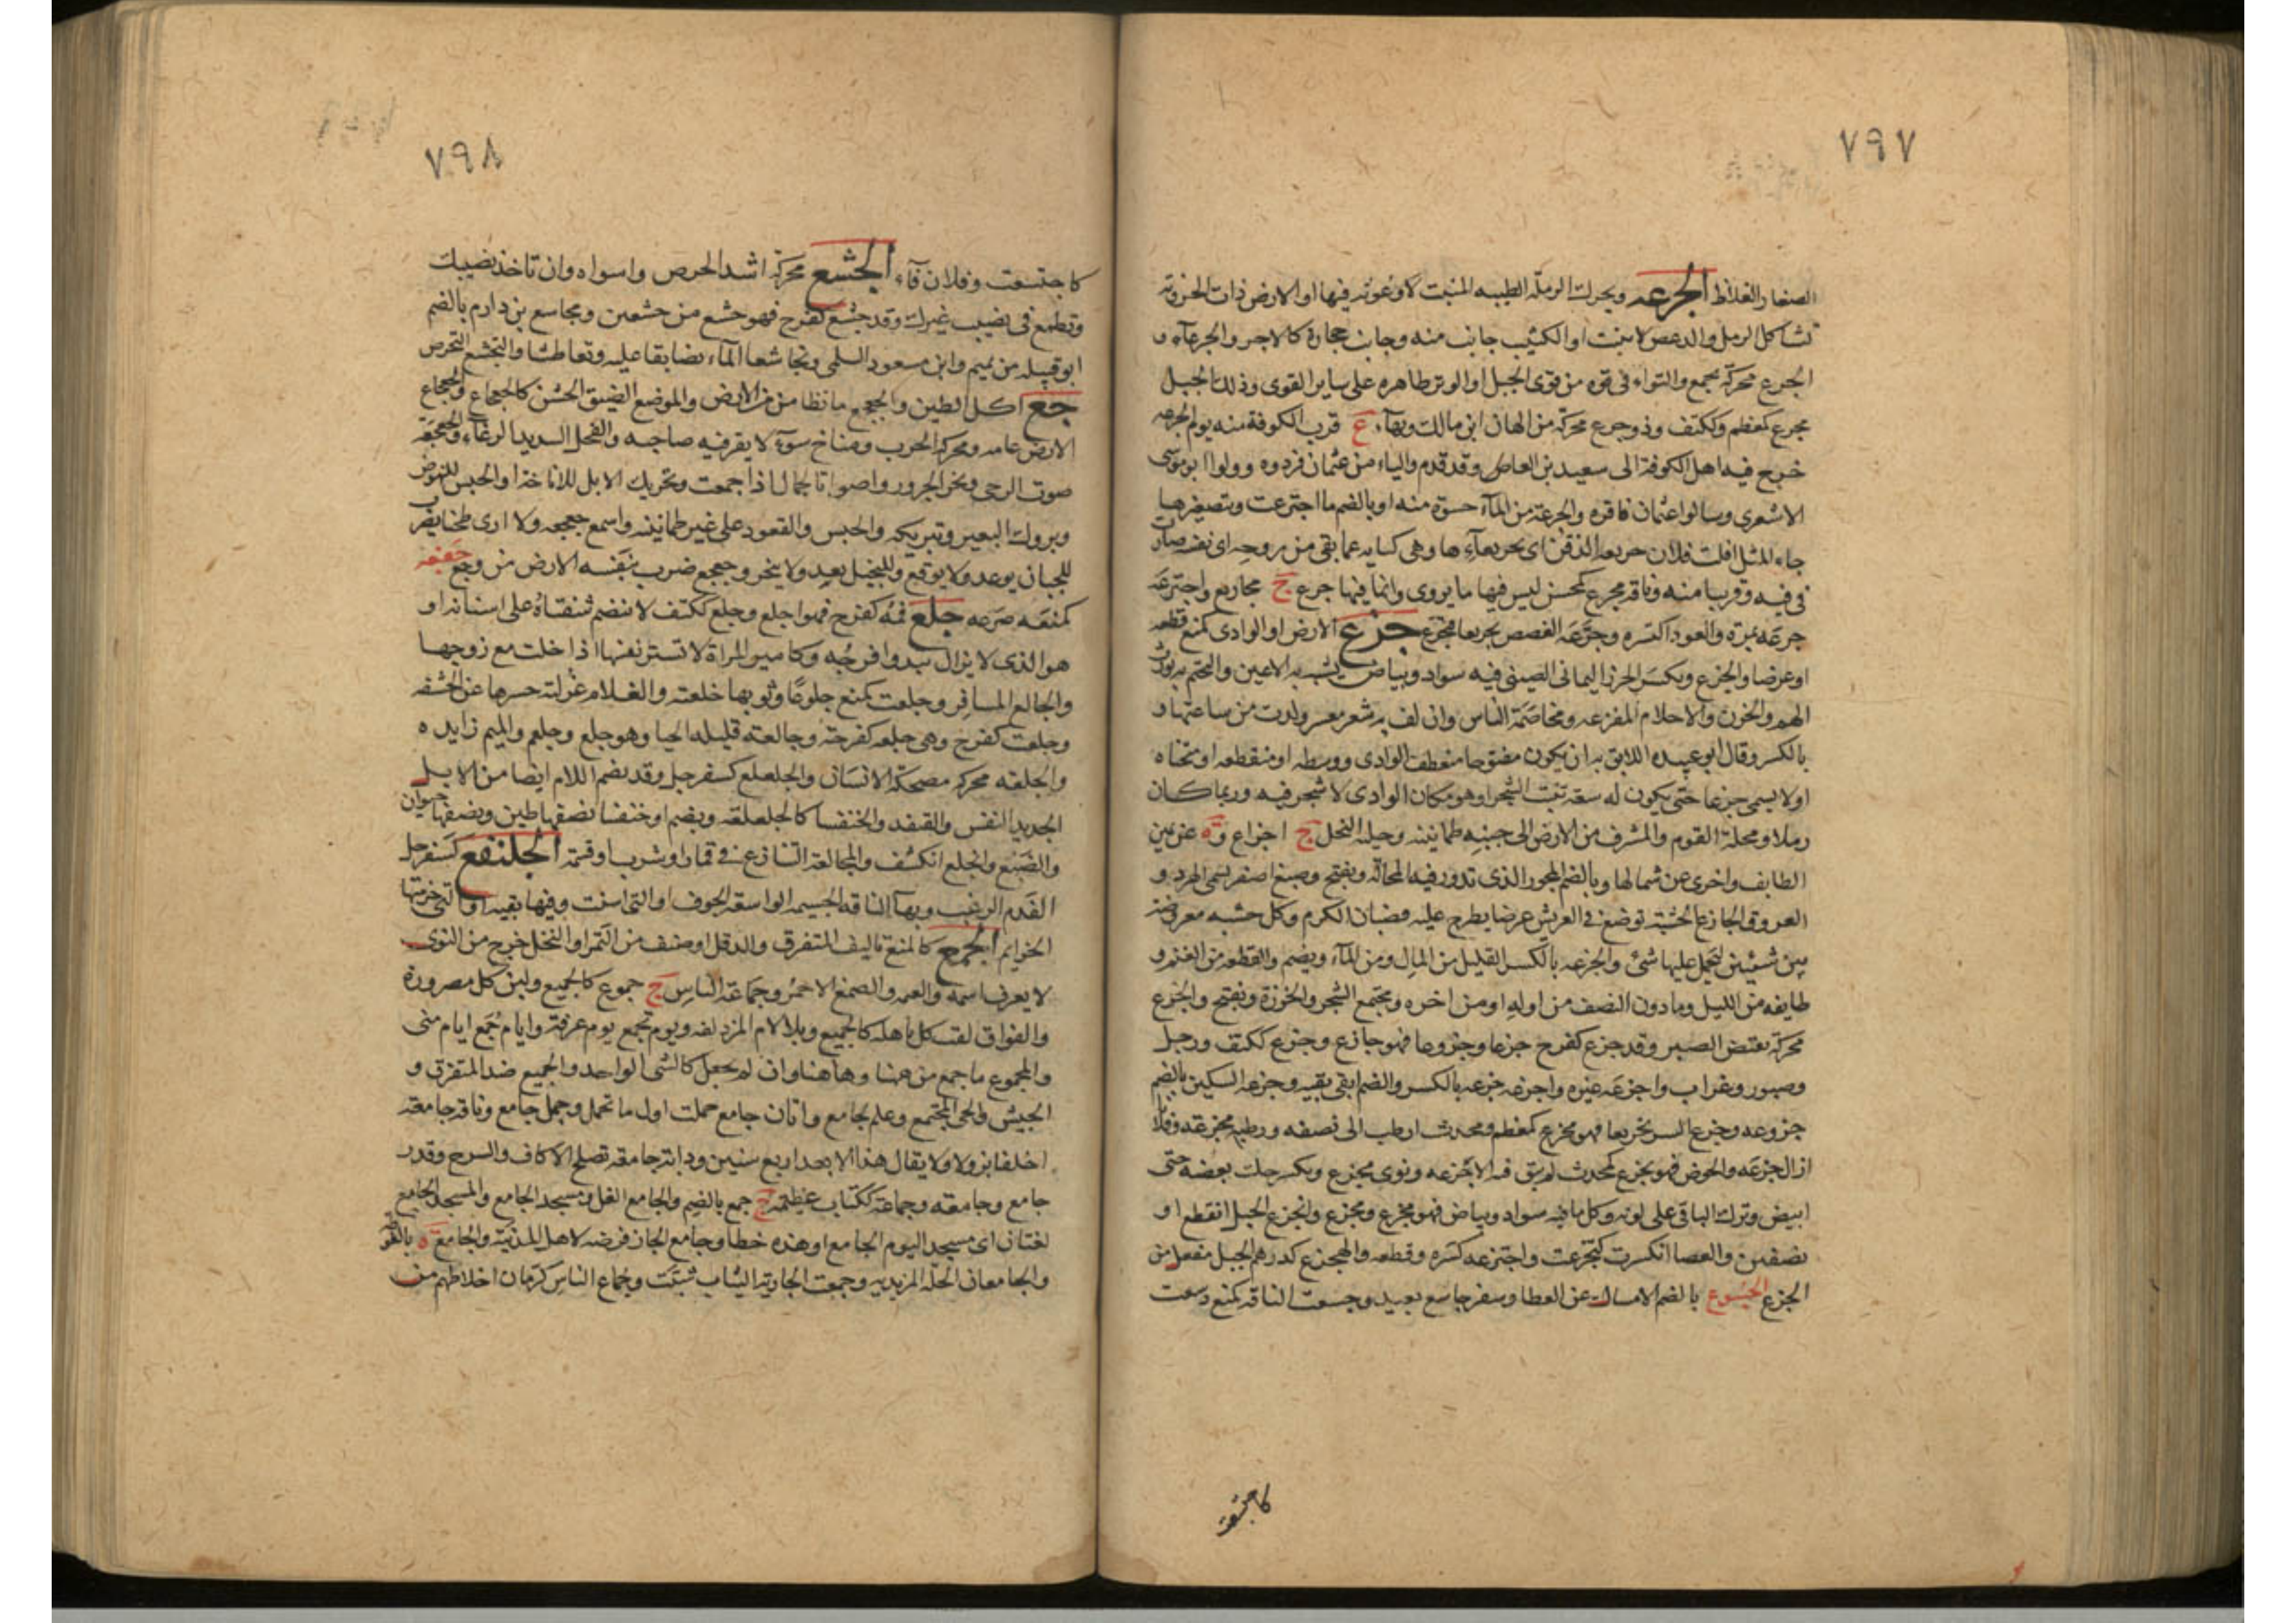 ٧٩٧
الصغار الغلاظ الجرعه ويحرك الرملة الطيبه المنبت لا وعوثه فيها او الارض ذات الحزونه
تشاكل الرمل والدعص لا ينبت او الكثيب جانب منه وجانب حجارة كالاجر والجرعآء و
الجرع محركة بجمع والتواء فى قوه من قوى الحبل او الوتر ظاهره على ساير القوى وذلك الحبل
مجرع كمعظم وككتف وذو جرع محركة من الهان ابن مالك وبهآء ع قرب الكوفة منه يوم الجرعه
خرج فيه اهل الكوفة الى سعيد بن العاص وقد قدم واليا من عثمان فردوه وولوا ابوموسى
الاشعرى وسالوا عثمان فاقره والجرعة من المآء حسوة منه او بالضم ما اجترعت وتصغيرها
جاء المثل افلت فلان جريعة الذقن اى بجريعآء ها وهى كنايه عما بقى من روحه اى نفسه صارت
فى فيه وقريبا منه وناقه مجرع كمحسن ليس فيها ما يروى وانما فيها جرع ج مجاريع واجترعه
جرعه بمرة والعود اكتسره وجرعه الغصص تجريعا فتجرع جزع الارض او الوادى كمنع قطعه
او عرضا والجزع ويكسر الخرز اليمانى الصينى فيه سواد وبياض يشبه به الاعين والتختم به يورث
الهم والحزن والاحلام المفزعه ومخاصمة الناس وان لف به شعر معسر ولدت من ساعتها و
بالكسر وقال ابو عبيده اللايق به ان يكون مفتوحا منعطف الوادى ووسطه او منقطعه او منحناه
او لا يسمى جزعا حتى يكون له سعة تنبت الشجر او هو مكان الوادى لا شجر فيه وربما كان
رملا ومحلة القوم والمشرف من الارض الى جنبه طمانينه وخلية النحل ج اجزاع وة عن يمين
الطايف واخرى عن شمالها وبالضم المحور الذى تدور فيه المحالة ويفتح وصبغ اصفر يسمى الهرد و
العروق والجازع الخشبة توضع فى العريش عرضا يطرح عليه قضبان الكرم وكل خشبه معروضة
بين شيئين لتحمل عليها شئ والجزعه بالكسر القليل من المال ومن المآء ويضم والقطعه من الغنم و
طايفه من الليل وما دون النصف من اوله او من اخره ومجتمع الشجر والخرزة ويفتح والجزع
محركة نقيض الصبر وقد جزع كفرح جزعا وجزوعا فهو جازع وجزع ككتف ورجل
وصبور وغراب واجزعه غيره واجزعه جزعه بالكسر والضم ابقى بقيه وجزعه السكين بالضم
جزوعه وجزع البسر تجزيعا فهو مجزع كمعظم ومحدث ارطب الى نصفه ورطبه مجزعه وفلانا
ازال جزعه والحوض فهو مجزع كمحدث لم يبق فيه الا جزعه ونوى مجزع ويكسر حك بعضه حتى
ابيض وترك الباقى على لونه وكل ما فيه سواد وبياض فهو مجزع ومجزع وانجزع الحبل انقطع او
نصفين والعصا انكسرت كتجزعت واجتزعه كسره وقطعه والهجزع كدرهم الجبل مفعل من
الجزع الجسوع بالضم الامساك عن العطا وسفر جاسع بعيد وجسعت الناقه كمنع دسعت
كاجتسعت
٧٩٨
كاجتسعت وفلان قآء الجشع محركة اشد الحرص واسواه وان تاخذ نصيبك
وتطمع فى نصيب غيرك وقد جشع كفرح فهو جشع من جشعين ومجاشع بن دارم بالضم
ابو قبيله من تميم وابن مسعود السلمى وتجاشعا المآء تضايقا عليه وتعاطشا والتجشع التحرص
جع اكل الطين والجعجع ما تطامن من الارض والموضع الضيق الخشن كالجعجاع والجعجاع
الارض عامه ومحركة الحرب ومناخ سوء لا يقر فيه صاحبه والفحل الشديد الرغاء والجعجعة
صوت الرحى ونحر الجزور واصوات الجمال اذا اجتمعت وتحريك الابل للاناخة او الحبس للنهوض
وبروك البعير وتبريكه والحبس والقعود على غير طمانينه واسمع جعجعه ولا ارى طحنا يضرب
للجبان يوعد ولا يوقع وللبخيل يعد ولا ينجز وجعجع ضرب بنفسه الارض من وجع جفعه
كمنعه صرعه جلع فمه كفرح فهو اجلع وجلع ككتف لا تنضم شفتاه على اسنانه او
هو الذى لا يزال يبدو فرجه وكامير المراة لا تستر نفسها اذا خلت مع زوجها
والجالع المسافر وجلعت كمنع جلوعا وثوبها خلعته والغلام غرلته حسرها عن الحشفه
وجلعت كفرح وهى جلعه كفرحة وجالعته قليله الحيا وهو جلع وجلعم والميم زايده
والجلعه محركه مضحكة الانسان والجلعلع كسفرجل وقد يضم اللام ايضا من الابل
الحديد النفس والقنفذ والخنفسا كالجلعلعه ويضم او خنفسا نصفها طين ونصفها حيوان
والضبع وانجلع انكشف والمجالعة التنازع فى قمار او شرب او قسمة الجلنفع كسفرجل
الفدم الرغيب وبهآ الناقه الجسيمه الواسعة الجوف او التى اسنت وفيها بقيه او التى خزمتها
الخزايم الجمع كالمنع تاليف المتفرق والدقل او صنف من التمر او النخل خرج من النوى
لا يعرف اسمه والصمغ الاحمر وجماعة الناس ج جموع كالجميع ولبن كل مصرورة
والفواق لقب كل باهله كالجميع وبلا لام المزدلفه ويوم جمع يوم عرفة وايام جمع ايام منى
والمجموع ما جمع من هنا وهاهنا وان لم يجعل كالشى الواحد والجميع ضد المتفرق و
الجيش والحى المجتمع وعلم لجامع واتان جامع حملت اول ما تحمل وجمل جامع وناقه جامعه
اخلفا بزولا ولا يقال هذا الا بعد اربع سنين ودابة جامعه تصلح للاكاف والسرج وقدر
جامع وجامعه وجماعة ككتاب عظيمه ج جمع بالضم والجامع الغل ومسجد الجامع والمسجد الجامع
لغتان اى مسجد اليوم الجامع او هذه خطا وجامع الجار فرضه لاهل المدينة والجامع ة بالغوطه
والجامعان الحلة المزيديه وجمعت الجاريه الثياب شبت وجماع الناس كرمان اخلاطهم من